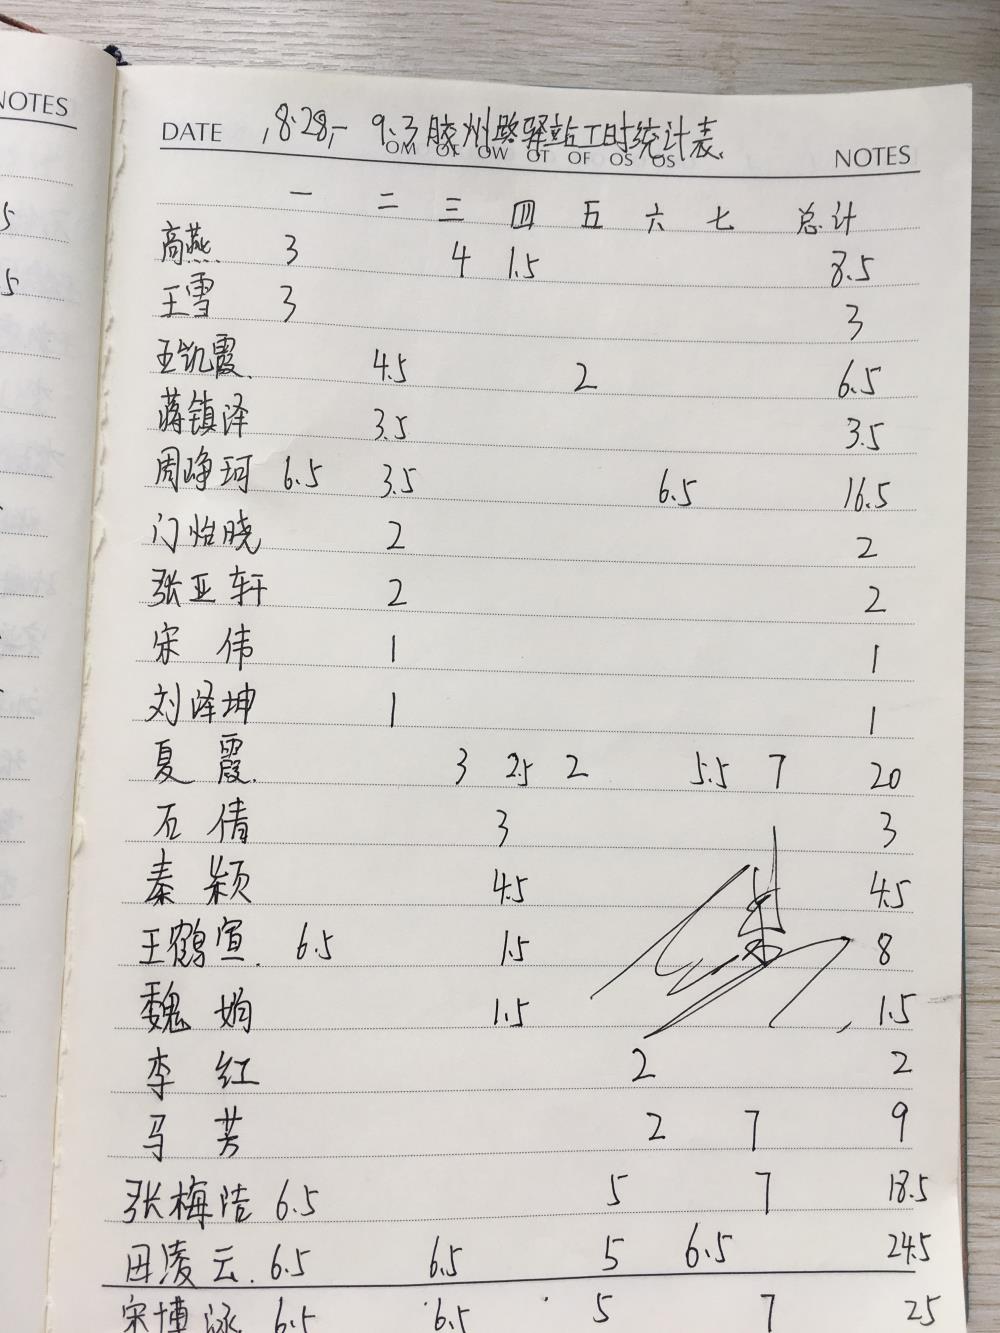 NOTES
5
.5
DATE 8.28,- 9.3胶州路驿站工时统计表.
OM OR OW OT OF OS OS NOTES
一 二 三 四 五 六 七 总计
高燕 3 4 1.5 8.5
王雪 3 3
王凯霞. 4.5 2 6.5
蒋镇泽 3.5 3.5
周峥珂 6.5 3.5 6.5 16.5
门怡晓 2 2
张亚轩 2 2
宋伟 1 1
刘泽坤 1 1
夏霞. 3 2.5 2 5.5 7 20
石倩 3 3
秦颖 4.5 4.5
王鹤宣. 6.5 1.5 8
魏娟 1.5 1.5
李红 2 2
马芳 2 7 9
张梅洁 6.5 5 7 18.5
田凌云. 6.5 6.5 5 6.5 24.5
宋博泳 6.5 6.5 5 7 25